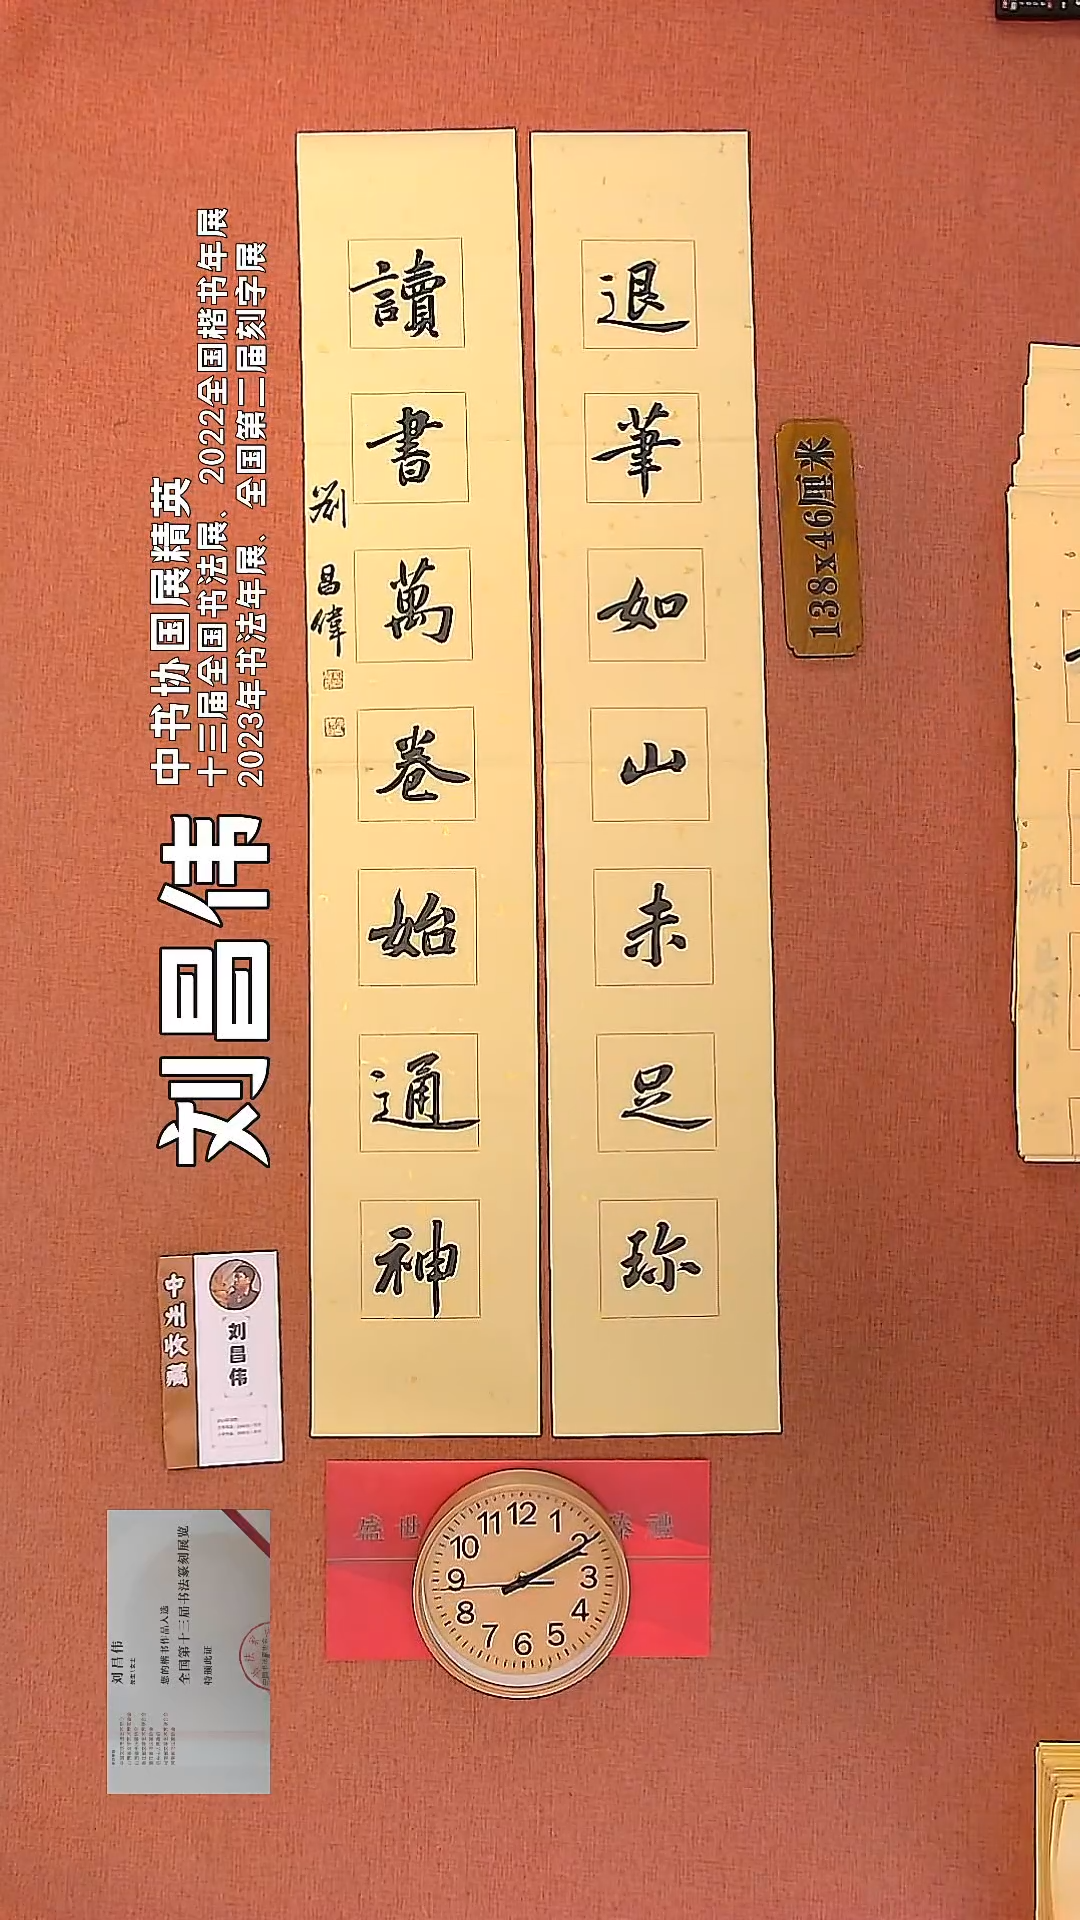 退筆如山未足珍
讀書萬卷始通神
劉昌偉
138x46厘米
刘昌伟
中书协国展精英
十三届全国书法展、2022全国楷书年展
2023年书法年展、全国第二届刻字展
刘昌伟
刘昌伟
您的楷书作品入选
全国第十三届书法篆刻展览
特颁此证
12
1
2
3
4
5
6
7
8
9
10
11